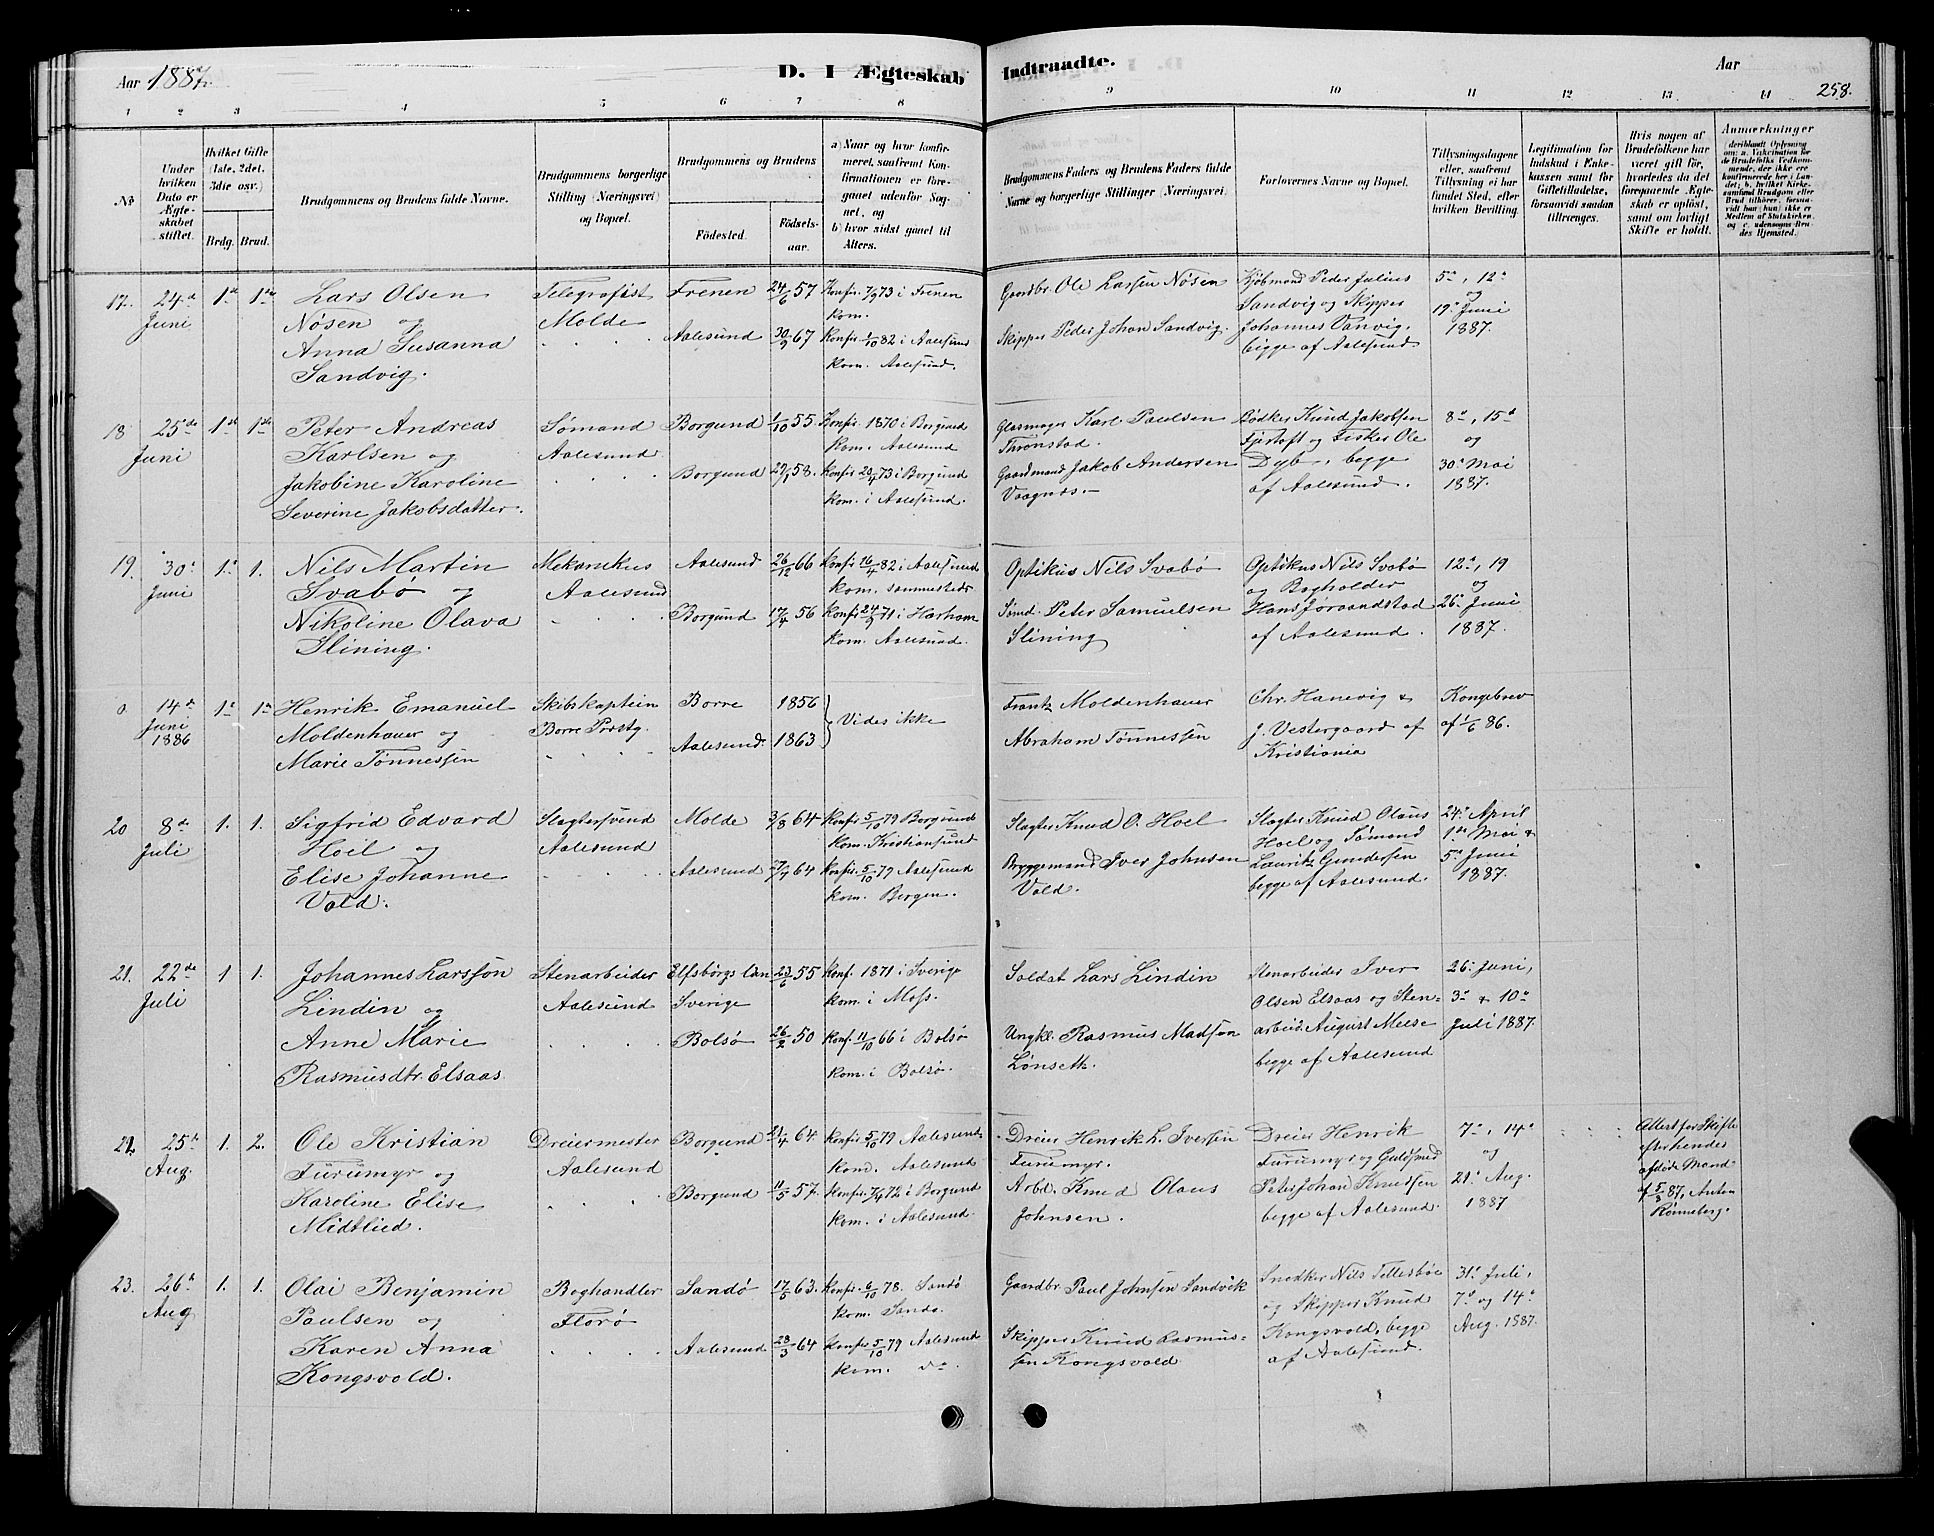 Aar 1887.
D. I Ægteskab Indtraadte.
Aar
258.
1 2 3 4 5 6 7 8 9 10 11 12 13 14
No
Under hvilken Dato er Ægteskabet stiftet.
Hvilket Gifte (1ste, 2det, 3die osv.)
Brdg. Brud.
Brudgommens og Brudens fulde Navne.
Brudgommens borgerlige Stilling (Næringsvei) og Bopæl.
Brudgommens og Brudens
Födested.
Födselsaar.
a) Naar og hvor konfirmeret, saafremt Konfirmationen er foregaaet udenfor Sognet, og
b) hvor sidst gaaet til Alters.
Brudgommens Faders og Brudens Faders fulde Navne og borgerlige Stillinger (Næringsvei).
Forlovernes Navne og Bopæl.
Tillysningsdagene eller, saafremt Tillysning ei har fundet Sted, efter hvilken Bevilling.
Legitimation for Indskud i Enkekassen samt for Giftetilladelse, forsaavidt saadan tiltrænges.
Hvis nogen af Brudefolkene har været gift för, hvorledes da det foregaaende Ægteskab er oplöst, samt om lovligt Skifte er holdt.
Anmærkninger
17. 24de Juni 1ste 1ste
Lars Olsen
Nösen og
Anna Susanna
Sandvig.
Telegrafist
Molde
Frenen 24/6 57
Konfir. 7/9 73 i Frenen
kom.
Aalesund 30/9 67
Konfir. 1/10 82 i Aalesund
kom. Aalesund.
Gaardbr. Ole Larsen Nösen
Skipper Peder Johan Sandvig.
Kjöbmand Peder Julius
Sandvig og Skipper
Johannes Vanvig,
begge af Aalesund
5te, 12te
og
19de Juni
1887.
18 25de Juni 1ste 1ste
Peter Andreas
Karlsen og
Jakobine Karoline
Severine Jakobsdatter.
Sömand
Aalesund
Borgund 1/10 55
Konfir. 1870 i Borgund
kom. Aalesund
Borgund 29/1 58.
Konfir. 20/4 73 i Borgund
kom. i Aalesund.
Glasmager Karl Paulsen
Thronstad.
Gaardmand Jakob Andersen
Vaagnes.
Bödker Knud Jakobsen
Fjörtoft og Fisker Ole
Dyb, begge
af Aalesund.
8de, 15de
og
30te Mai
1887.
19. 30te Juni 1. 1.
Nils Martin
Svabö og
Nikoline Olava
Slining.
Mekanikus
Aalesund
Aalesund 26/12 66
Konfir 16/4 82 i Aalesund
kom. sammesteds
Borgund 17/4 56
Konfir. 24/9 71 i Harham
kom. Aalesund.
Optikus Nils Svabö
Peter Samuelsen
Slining
Optikus Nils Svabö
og Bogholder
Hans Jöraandstad
af Aalesund.
12te, 19
og
26. Juni
1887.
0 14de Juni 1886 1ste 1ste
Henrik Emanuel
Moldenhauer og
Marie Tönnessen
Skibskaptein
Borre Prstg.
Borre 1856
Aalesund. 1863
Vides ikke
Frantz Moldenhauer
Abraham Tönnessen
Chr. Hanevig &
J. Vestergaard af
Kristiania
Kongebrev
af 1/6 86.
20 8de Juli 1. 1.
Sigfrid Edvard
Hoel og
Elise Johanne
Vold.
Slagtersvend
Aalesund
Molde 3/8 64
Konfir. 5/10 79 Borgund
kom. Kristiansund
Aalesund 64
Konfir. 5/10 79 Aalesund
kom. Bergen.
Slagter Knud O. Hoel
Bryggemand Iver Johnsen
Vold.
Slagter Knud Olaus
Hoel og Sömand
Lauritz Gundersen
begge af Aalesund.
24de April
1ste Mai &
5te Juni
1887.
21. 22de Juli 1 1.
Johannes Larsson
Lindin og
Anne Marie
Rasmusdtr. Elsaas
Stenarbeider
Aalesund
Elfsborgs Län
Sverige
23/6 55
Konf. 1871 i Sverige
kom. i Moss.
Bolsö 26/2 50
Konf. 11/10 66 i Bolsö
kom. i Bolsö.
Soldat Lars Lindin
Ungkl. Rasmus Madsen
Lönseth.
Stenarbeider Iver
Olsen Elsaas og Stenarbeid. August Melse
begge af Aalesund
26. Juni,
3de & 10de
Juli 1887.
22 25de Aug. 1. 2.
Ole Kristian
Furumyr og
Karoline Elise
Midtlied.
Dreiermester
Aalesund
Borgund 21/4 64
Konfir. 5/10 79 Aalesund
kom. Aalesund
Borgund 11/5 57.
Konfir. 7/4 72 i Borgund
kom. i Aalesund.
Dreier Henrik L. Iversen
Furumyr.
Arbd. Knud Olaus
Johnsen.
Dreier Henrik
Furumyr og Guldsmed
Peter Johan Knudsen
begge af Aalesund.
7de, 14de
og
21. Aug.
1887
Attest for Skifte
efter hendes
afdöde Mand
af 5/3 87, Anton
Rönneberg.
23. 26de Aug 1. 1.
Olai Benjamin
Paulsen og
Karen Anna
Kongsvold.
Boghandler
Florö
Sandö 17/5 63.
Konfir. 6/10 78. Sandö
kom. Sandö.
Aalesund 23/3 64
Konfir 5/10 79 Aalesund
kom. do.
Gaardbr. Paul Johnsen Sandvik
Skipper Knud Rasmussen Kongsvold
Snedker Nils Tellesböe
og Skipper Knud
Kongsvold, begge
af Aalesund.
31te Juli,
7de og 14de
Aug. 1887.